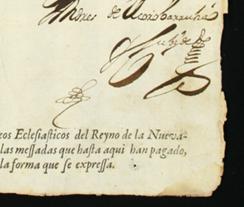 Andres de
eos Eclesiasticos del Reyno de la Nueva-
las messadas que hasta aqui han pagado,
la forma que se expressa.